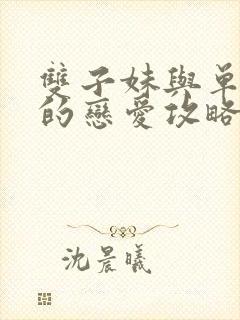 雙子妹與單
的戀愛攻略
沈晨曦